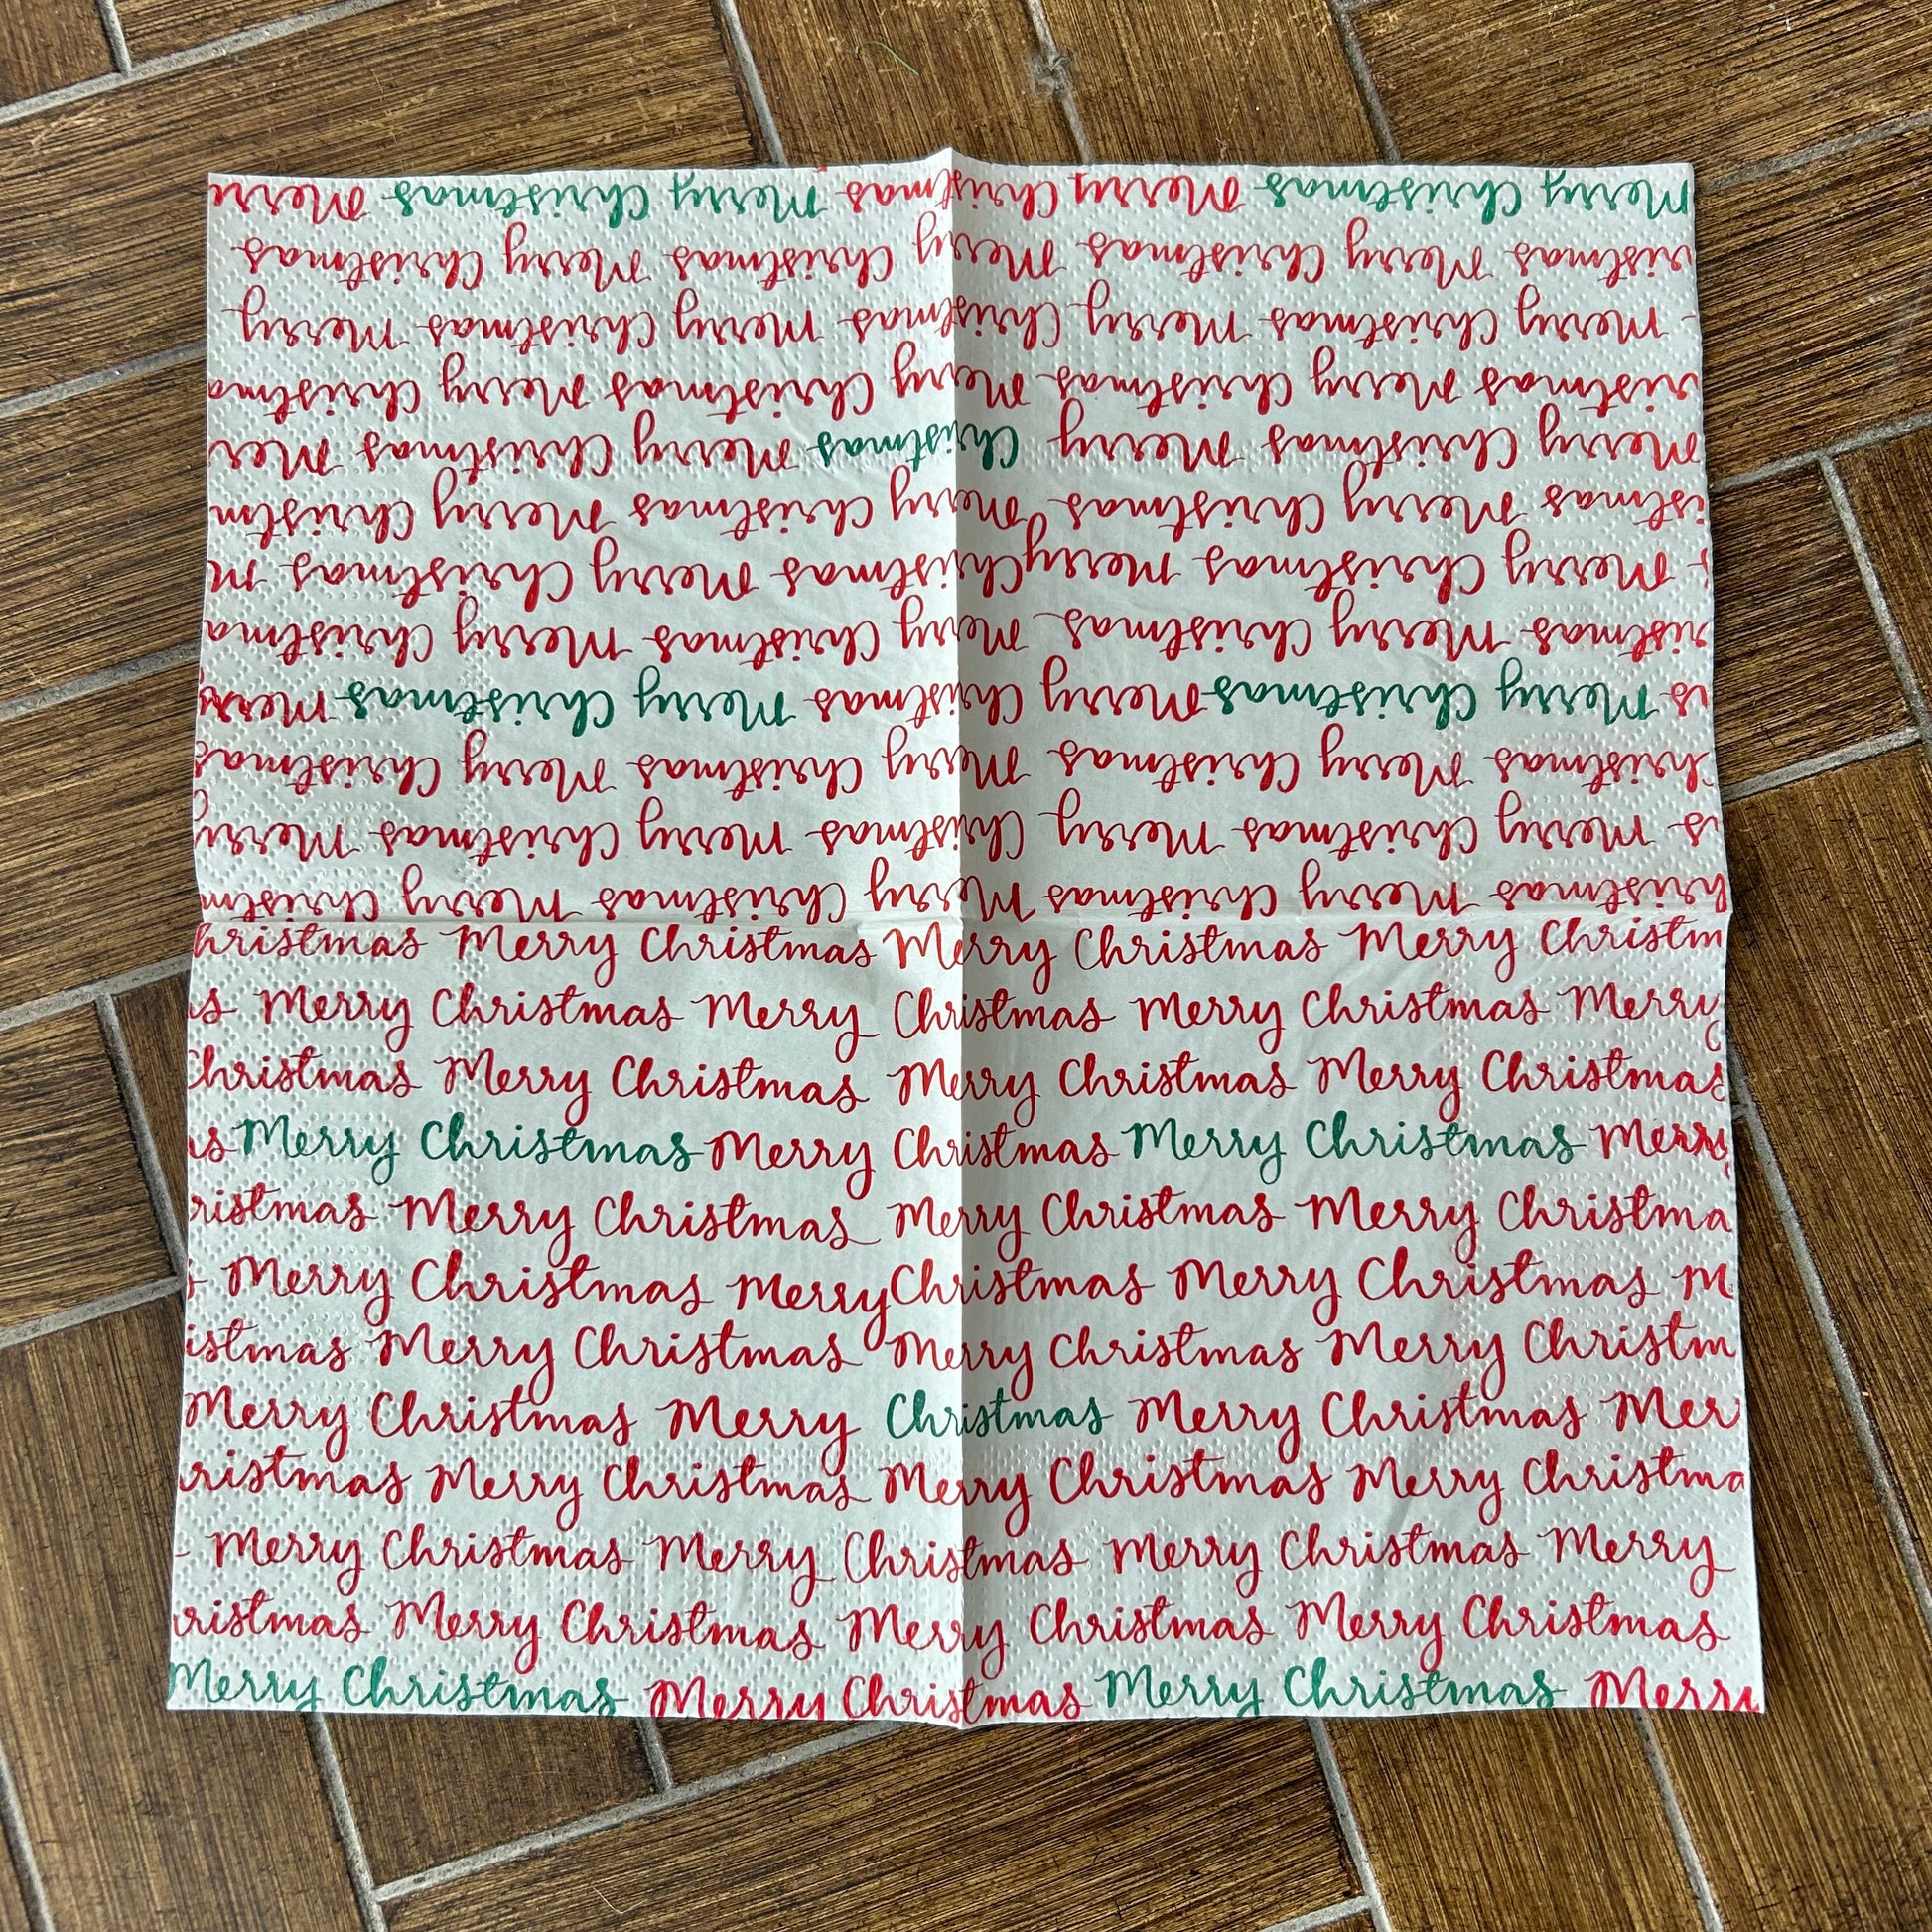 Merry Christmas Merry Christmas Merry Christmas Merr
ristmas Merry Christmas Merry Christmas Merry Christmas
Merry Christmas Merry Christmas Merry Christmas Merry
ristmas Merry Christmas Merry Christmas Merry Christma
Merry Christmas Merry Christmas Merry Christmas Mer
istmas Merry Christmas Merry Christmas Merry Christm
Merry Christmas Merry Christmas Merry Christmas M
ristmas Merry Christmas Merry Christmas Merry Christma
is Merry Christmas Merry Christmas Merry Christmas Merry
hristmas Merry Christmas Merry Christmas Merry Christmas
is Merry Christmas Merry Christmas Merry Christmas Merry
hristmas Merry Christmas Merry Christmas Merry Christm
hristmas Merry Christmas Merry Christmas Merry Christm
is Merry Christmas Merry Christmas Merry Christmas Merry
Christmas Merry Christmas Merry Christmas Merry Christmas
is Merry Christmas Merry Christmas Merry Christmas Merry
ristmas Merry Christmas Merry Christmas Merry Christma
Merry Christmas Merry Christmas Merry Christmas M
istmas Merry Christmas Merry Christmas Merry Christm
Merry Christmas Merry Christmas Merry Christmas Mer
ristmas Merry Christmas Merry Christmas Merry Christma
Merry Christmas Merry Christmas Merry Christmas Merry
ristmas Merry Christmas Merry Christmas Merry Christmas
Merry Christmas Merry Christmas Merry Christmas Merry